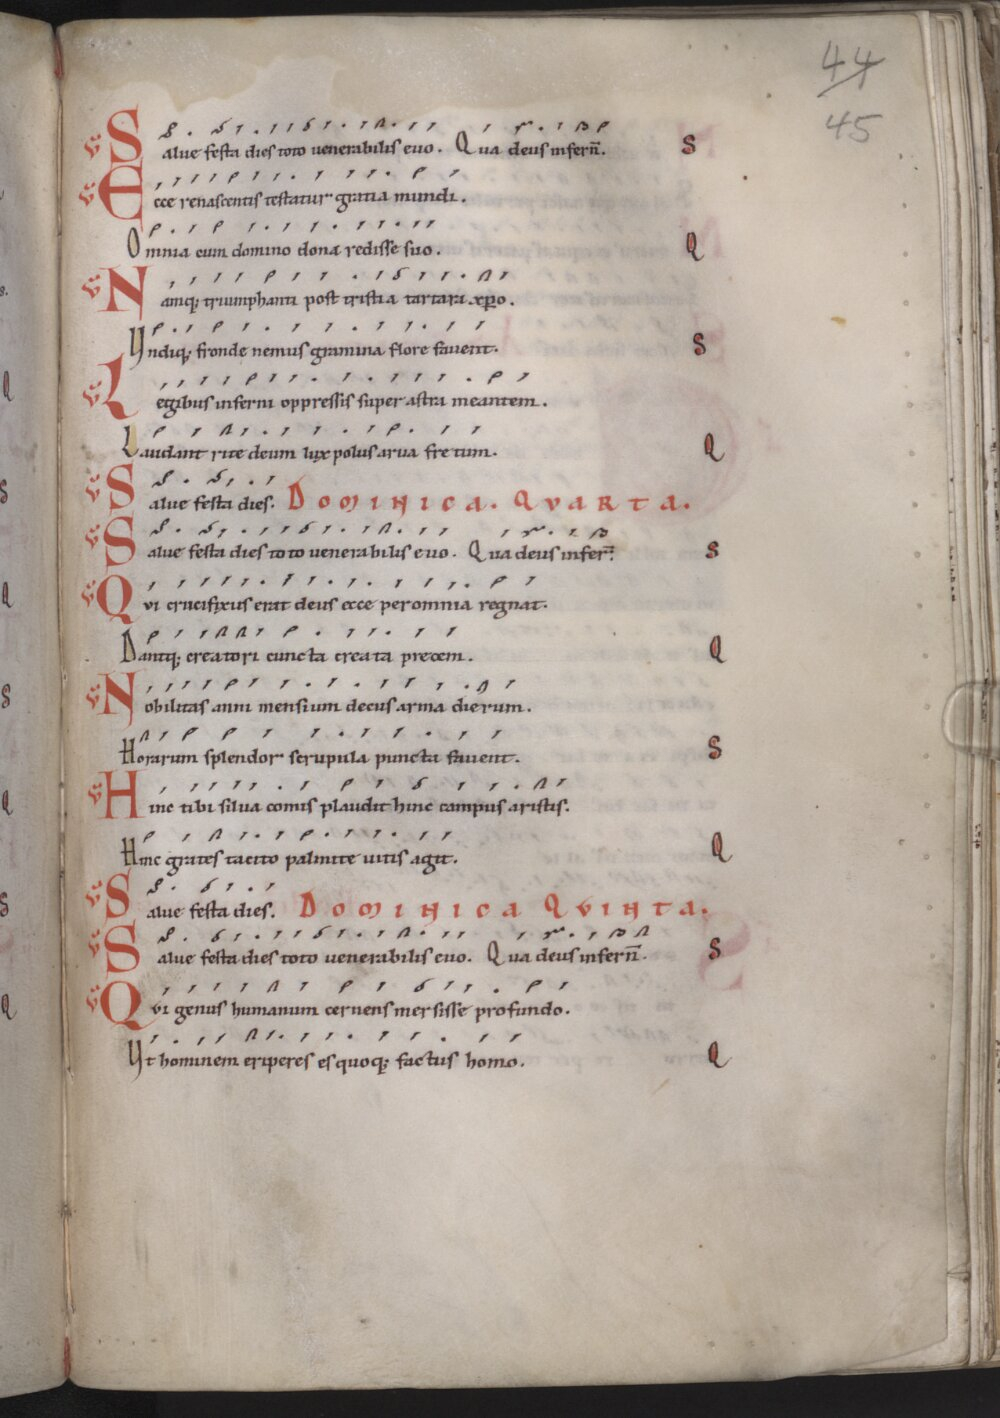 44
45
V Salue festa dies toto uenerabilis euo. Qua deus infern̄. S
V Ecce renascentis testatur gratia mundi.
Omnia cum domino dona redisse suo. Q
V Namq; triumphanti post tristia tartara xp̄o.
Vndiq; fronde nemus gramina flore fauent. S
V Legibus inferni oppressis super astra meantem.
Laudant rite deum lux polus arua fretum. Q
V Salue festa dies. DOMINICA. QVARTA.
V Salue festa dies toto uenerabilis euo. Qua deus infer̄. S
V Qui crucifixus erat deus ecce per omnia regnat.
Dantq; creatori cuncta creata precem. Q
V Nobilitas anni mensium decus arma dierum.
Horarum splendor scrupula puncta fauent. S
V Hinc tibi silua comis plaudit hinc campus aristis.
Hinc grates tacito palmite uitis agit. Q
V Salue festa dies. DOMINICA QVINTA.
V Salue festa dies toto uenerabilis euo. Qua deus infern̄. S
V Qui genus humanum cernens mersisse profundo.
Vt hominem eriperes es quoq; factus homo. Q